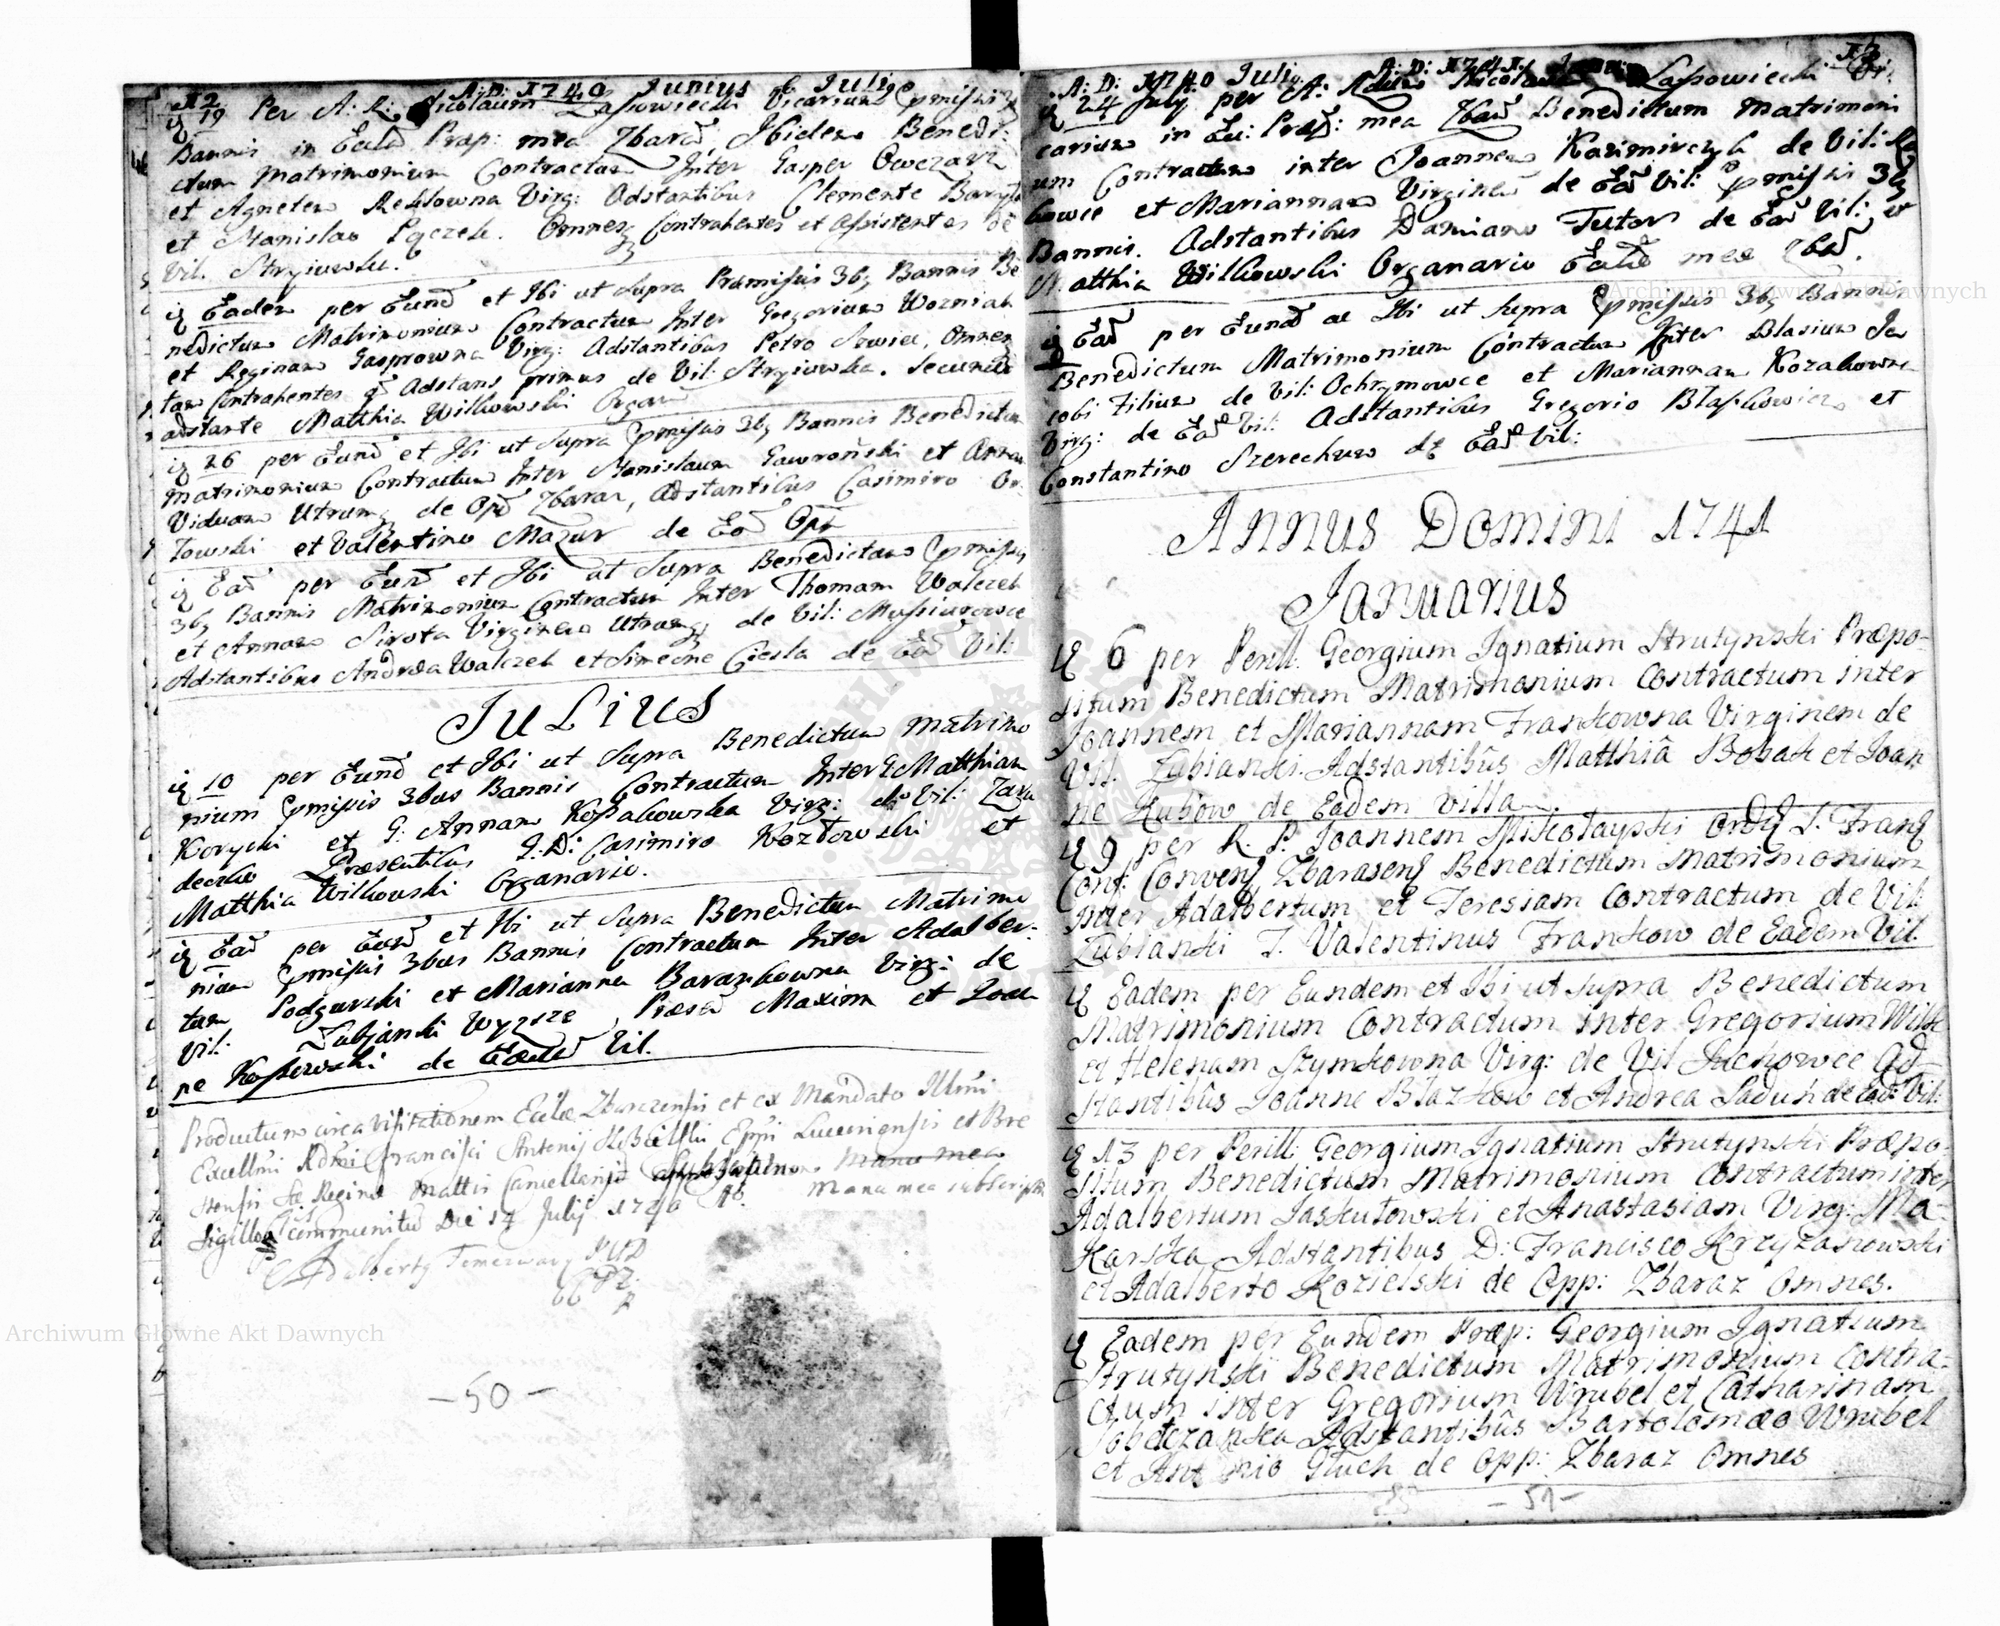 12
A: D: 1740 Junius et Julig
19 Per A: R: Nicolaum Lassowiecki Vicarium pmissis
Bannis in Eccla Præp: mea Zbara, Ibidem Benedi:
ctum Matrimonium Contractum Inter Gasper Owczarz
et Agnetem Virg: Adstantibus Clemente
et Stanislao Pączek. Omnes Contrahentes et Assistentes de
Vil. Stryiowka.
Eadem per Eund et Ibi ut Supra Præmissis 3bg Bannis Be
nedictum Matrimonium Contractum Inter Gregorium Wozniak
et Reginam Gasprowna Virg: Adstantibus Petro Szwiec, Omnes
tam Contrahentes q Adstans primus de Vil: Stryiowka. Secundo
adstante Matthia Wilkowski Organ
26 per Eund et Ibi ut Supra pmissis 3bg Bannis Benedictum
Matrimonium Contractum Inter Stanislaum Gawroński et Annam
Viduam Utrumq de Opd Zbaraz, Adstantibus Casimiro
towski et Valentino Mazur de Eod Opd
Ead per Eund et Ibi ut Supra Benedictum pmissis
3bg Bannis Matrimonium Contractum Inter Thomam Walczek
et Annam Sirota Virginem Utrosq de Vil:
Adstantibus Andrea Walczek et Simeone Ciesla de Ead Vil:
Julius
10 per Eund et Ibi ut Supra Benedictum Matrimo
nium pmissis 3bus Bannis Contractum Inter G Matthiam
Korycki et G: Annam Kossakowska Virg: de Vil: Zaru
deczko Præsentibus G: D: Casimiro Kozłowski et
Matthia Wilkowski Organario.
Ead per Eund et Ibi ut Supra Benedictum Matrimo
nium pmissis 3bus Bannis Contractum Inter Adalber:
tum Podgurski et Marianna Barankowna Virg: de
Vil: Lubianki Wyzsze, Præsen Maxim et Joan
ne Kossowski de Eadem Vil.
Productum circa Visitationem Ecclæ Zbarazensis et ex Mandato Illmi
Excellmi Rdmi Francisci Antonij Kobielski Eppi Luceoriensis et Bre
stensis Sæ Reginæ Mattis Cancellarij Manu mea
Sigilloq communitu Die 17 July 1740 Manu mea subscripsi
Adalberty
- 50 -
A: D: 1740 Julig
A: D: 1741.
13
24 July per A: Rdum Nicolaum Lassowiecki Vi:
carium in Ecc: Præp: mea Zbar Benedictum Matrimoni
um Contractum inter Joannem Kazimirczyk de Vil:
kowce et Mariannam Virginem de Ead Vil: pmissis 3bg
Bannis. Adstantibus Damiano Tutor de Ead Vil: et
Matthia Wilkowski Organario Eccla mea Zbar.
Ead per Eund ac Ibi ut Supra pmissis 3bg Bannis
Benedictum Matrimonium Contractum Inter Blasium Ja
cobi Filium de Vil: Ochrymowce et Mariannam Kozakowna
Virg: de Ead Vil: Adstantibus Gregorio Błaszkowicz et
Constantino Szerechun de Ead Vil:
Annus Domini 1741
Januarius
6 per Perill: Georgium Ignatium Strutynski Præpo-
situm Benedictum Matrimonium Contractum inter
Joannem et Mariannam Frankowna Virginem de
Vil. Lubianki. Adstantibus Matthia Bobak et Joan
ne Kubow de Eadem Villa.
9 per R. P. Joannem Mikołayski Ordis S. Franci
Cont: Convens Zbarasens Benedictum Matrimonium
inter Adalbertum et Teresiam Contractum de Vil
Lubianki T. Valentinus Frankow de Eadem Vil.
Eadem per Eundem et Ibi ut supra Benedictum
Matrimonium Contractum inter Gregorium Wilk
et Helenam Szymkowna Virg: de Vil Iackowce Ad
stantibus Joanne Błazkow et Andrea Laduk de Ead: Vil:
13 per Perill: Georgium Ignatium Strutynski Præpo-
situm Benedictum Matrimonium Contractum inter
Adalbertum Jaskułowski et Anastasiam Virg: Ma-
karska Adstantibus D: Francisco Krzyzanowski
et Adalberto Kozielski de Opp: Zbaraz Omnes.
Eadem per Eundem Præp: Georgium Ignatium
Strutynski Benedictum Matrimonium Contra-
ctum inter Gregorium Wrubel et Catharinam
Adstantibus Bartolomæo Wrubel
et Antonio Głuch de Opp: Zbaraz Omnes
- 51 -
Archiwum Główne Akt Dawnych
Archiwum Główne Akt Dawnych